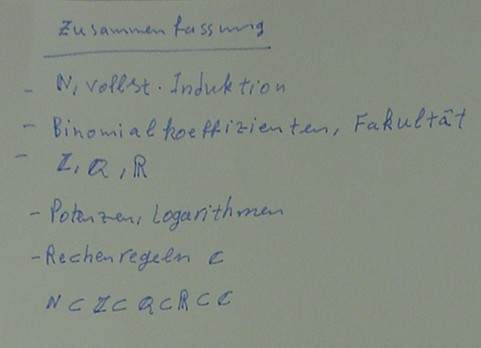 Zusammenfassung
- ℕ, vollst. Induktion
- Binomialkoeffizienten, Fakultät
- ℤ, ℚ, ℝ
- Potenzen, Logarithmen
- Rechenregeln ℂ
ℕ ⊂ ℤ ⊂ ℚ ⊂ ℝ ⊂ ℂ